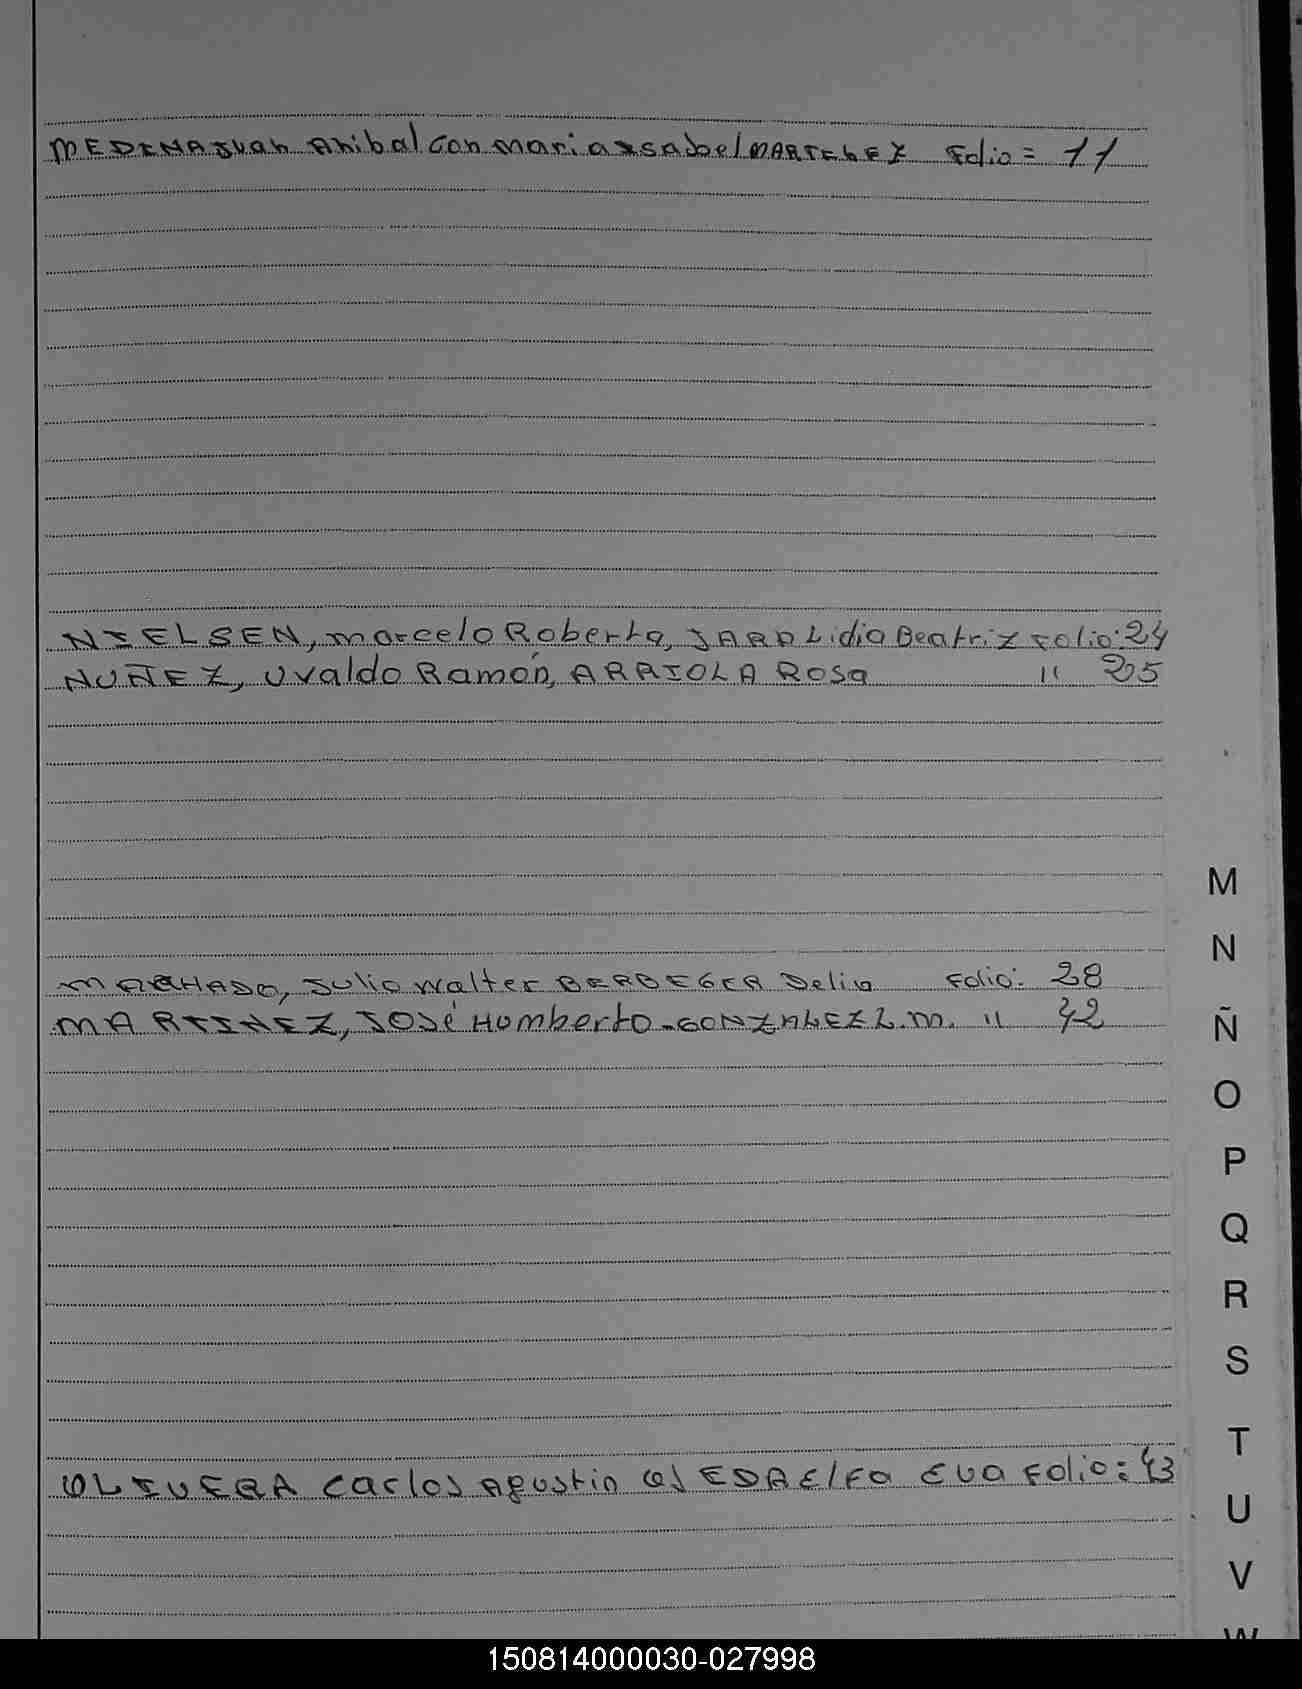 MEDINA Juan Anibal con Maria Isabel MARTINEZ Folio = 11
NIELSEN, Marcelo Roberto, JARA Lidia Beatriz Folio: 24
NUÑEZ, Uvaldo Ramón, ARRIOLA Rosa " 25
MACHADO, Julio Walter Delia Folio: 28
MARTINEZ, José Humberto - GONZALEZ L.M. " 42
OLIVERA Carlos Agustin Eva Folio: 43
M
N
Ñ
O
P
Q
R
S
T
U
V
W
150814000030-027998